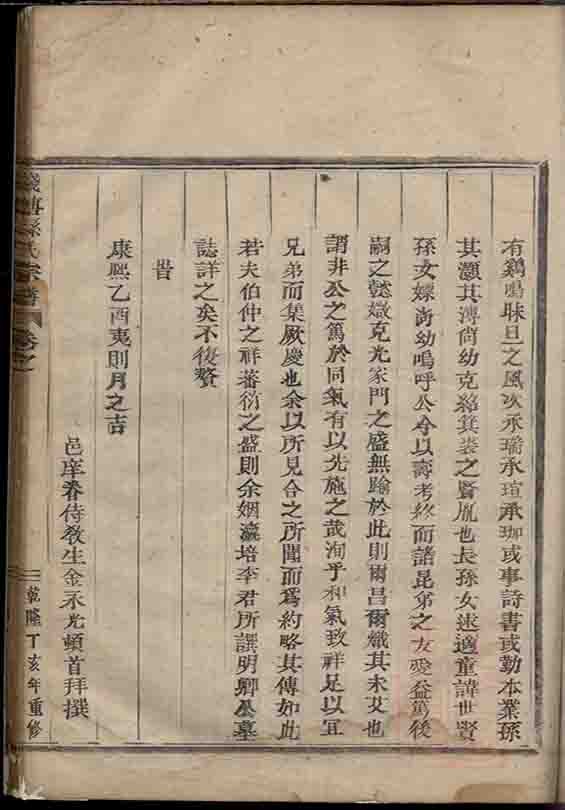 有鷄鳴昧旦之風次承瑞承瑄承珈或事詩書或勤本業孫
其灝其溥尙幼克紹箕裘之賢胤也長孫女遠適童諱世賢
孫女嫁尙幼嗚呼公今以壽考終而諸昆弟之友愛益篤後
嗣之懿媺克光家門之盛無踰於此則爾昌爾熾其未艾也
謂非公之篤於同氣有以先施之哉洵乎和氣致祥足以宜
兄弟而集厥慶也余以所見合之所聞而爲約略其傳如此
若夫伯仲之祥蕃衍之盛則余姻瀛培李君所譔明卿公墓
誌詳之矣不復贅
旹
康熙乙酉夷則月之吉
邑庠眷侍敎生金丕光頓首拜撰
氏宗譜 卷之
乾隆丁亥年重修